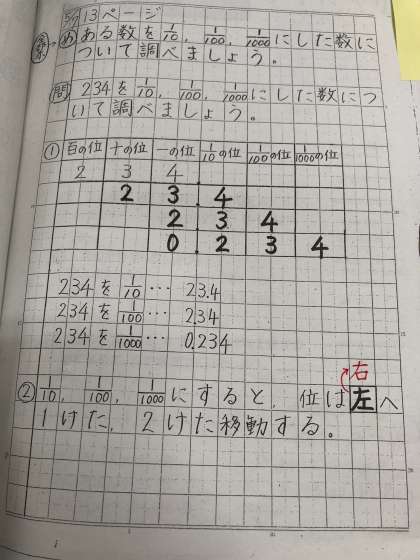 5/7 13ページ
め ある数を1/10, 1/100, 1/1000にした数に
ついて調べましょう。
問 234を1/10, 1/100, 1/1000にした数につ
いて調べましょう。
① 百の位 十の位 一の位 1/10の位 1/100の位 1/1000の位
2 3 4.
2 3.4
2.3 4
0.2 3 4
234を1/10… 23.4
234を1/100… 2.34
234を1/1000… 0.234
右
② 1/10, 1/100, 1/1000にすると, 位は左へ
1けた, 2けた移動する。